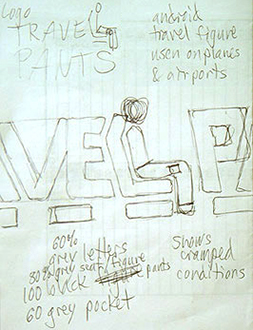 Logo
TRAVEL
PANTS
android
travel figure
used on planes
& airports
VEL P
60%
grey letters
80% grey seat/figure
100 black pants
60 grey pocket
Shows
cramped
conditions